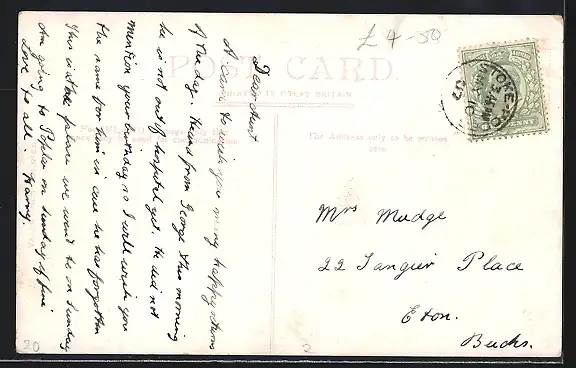 £4-50
POST CARD.
PRINTED IN GREAT BRITAIN
The Address only to be written
here
Dear Aunt
A card to wish you many happy returns
of the day. Heard from George this morning
he is not out of hospital yet. He did not
mention your birthday so I will wish you
the same for him in case he has forgotten
This is the palace we went to on Sunday
Am going to on Sunday if fine
Love to all. Harry.
Mrs Mudge
22 Tangier Place
Eton.
Bucks.
STOKE
MY 10
07
PENNY
20